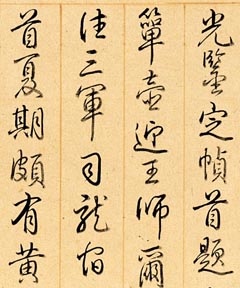 光鑒定幀首題
簞壺迎王師爾
三軍司龍
首夏期頗有黃